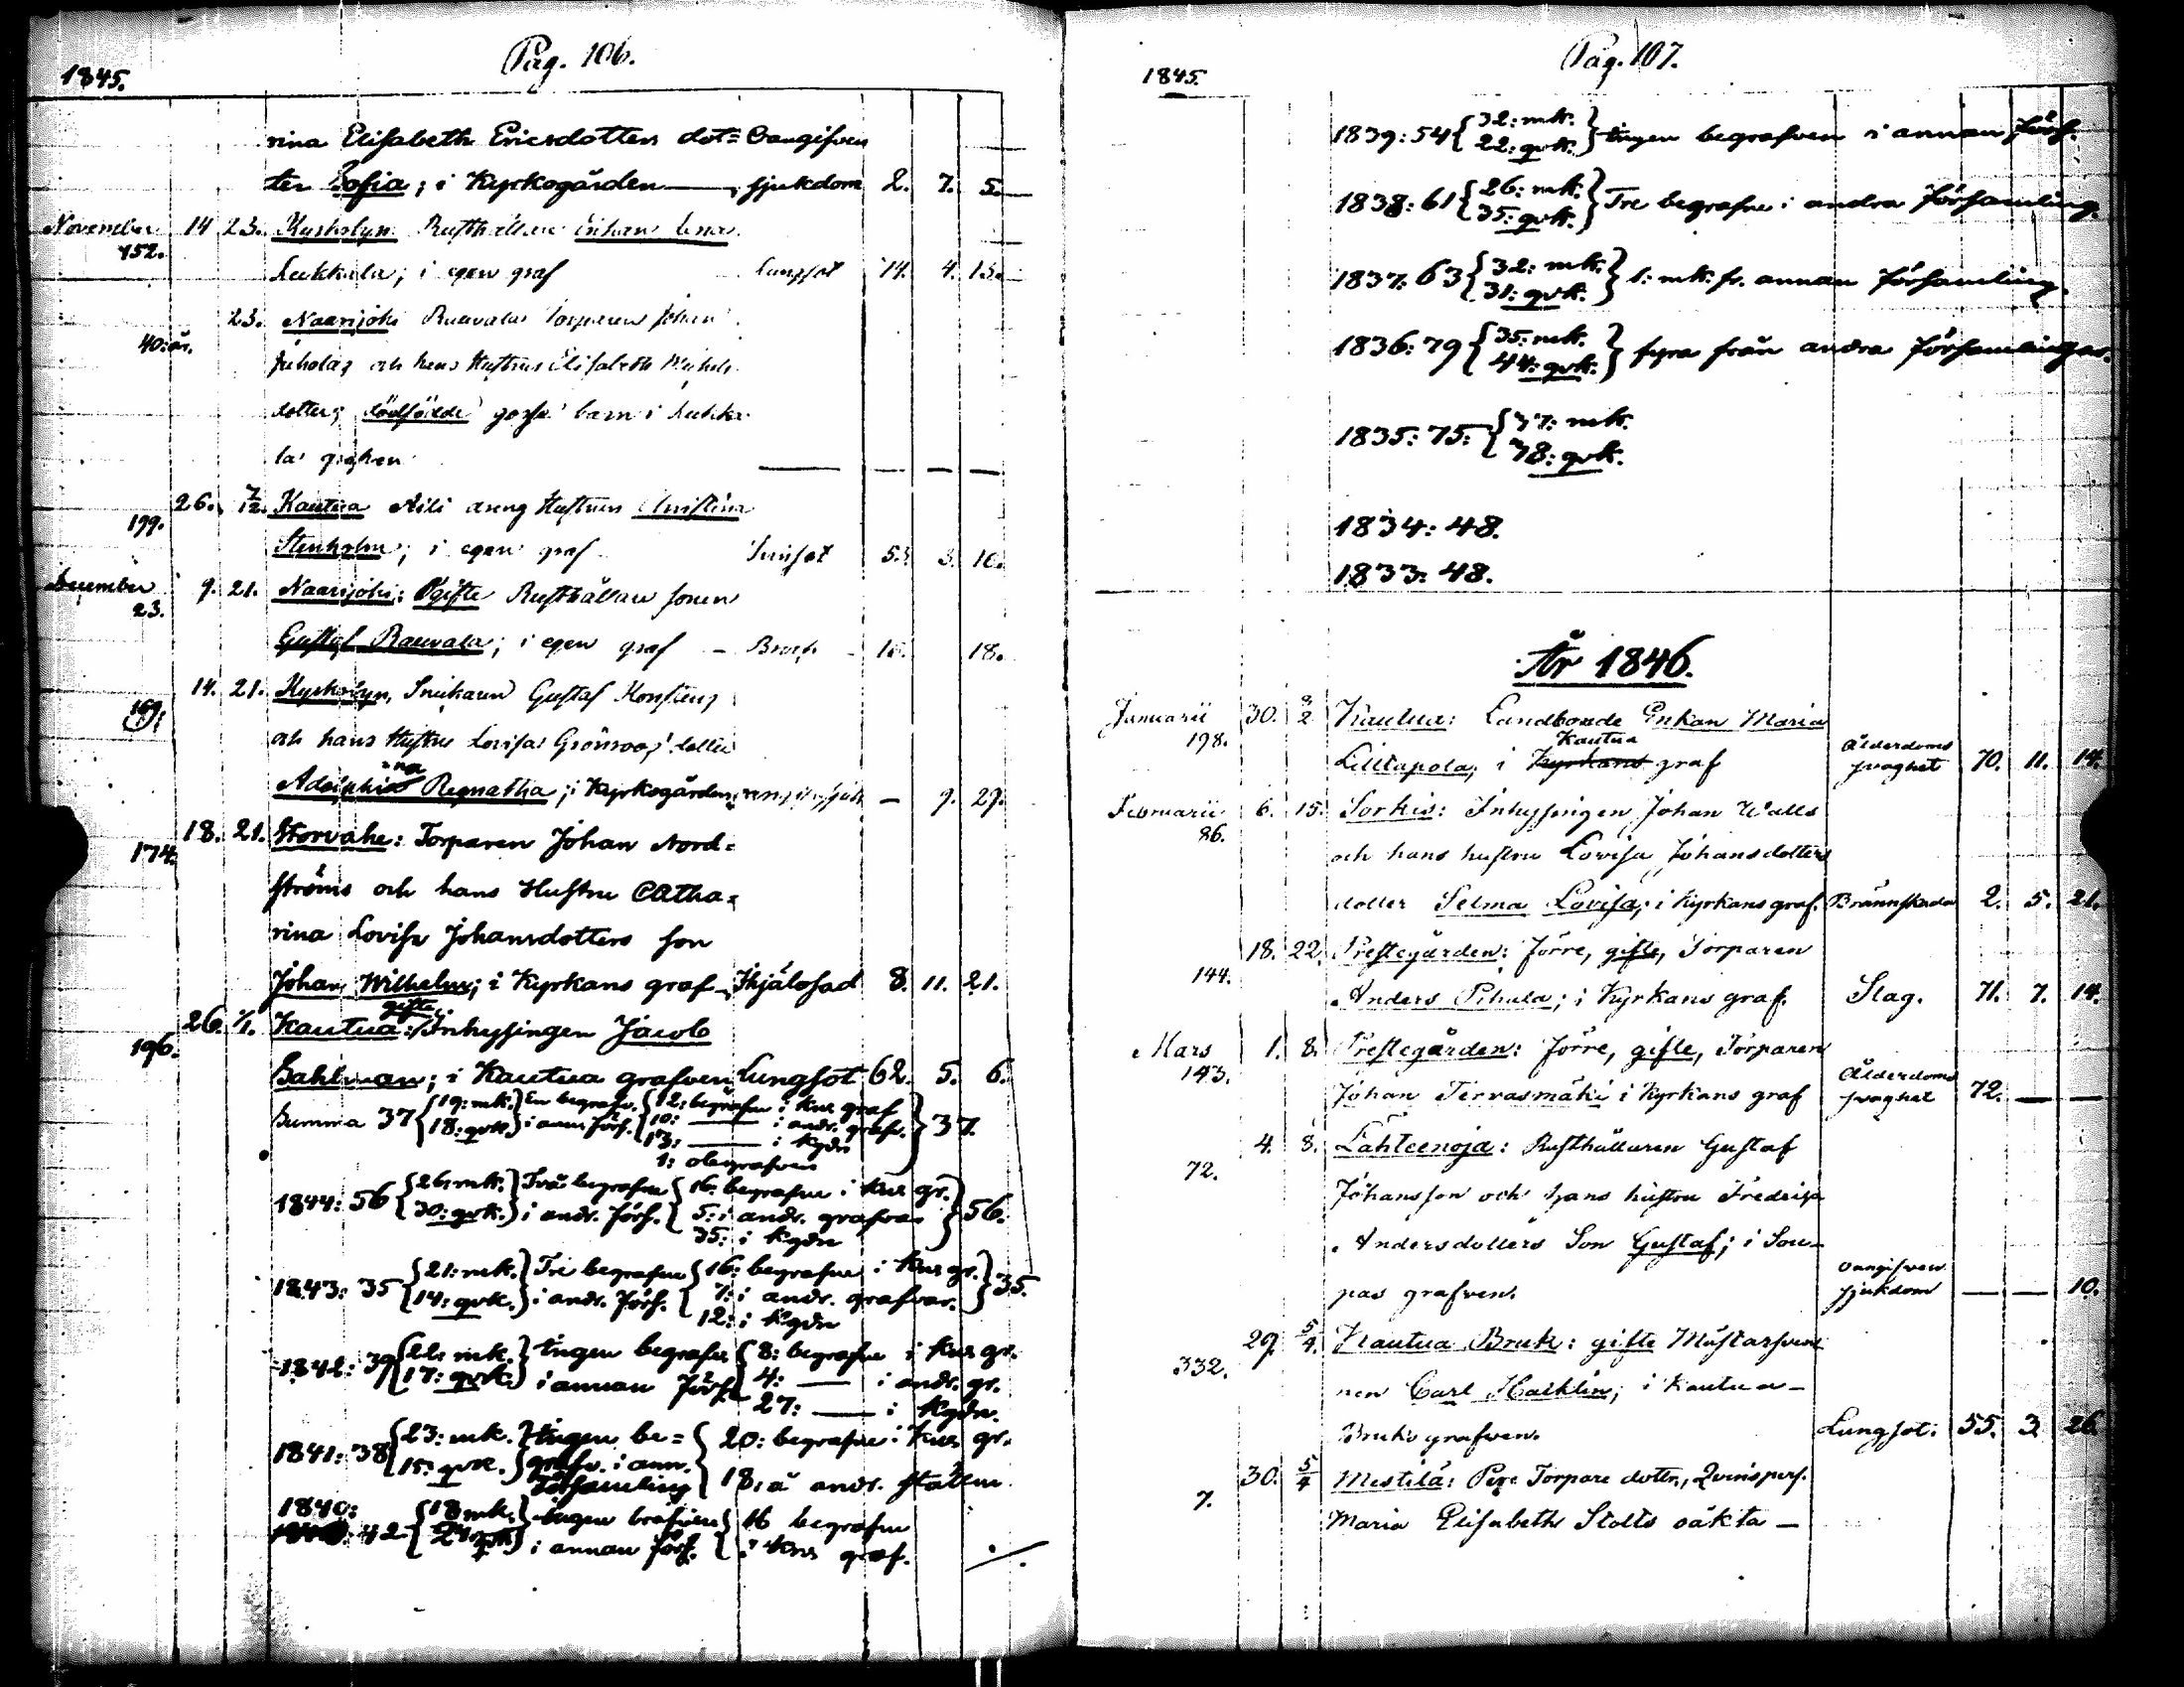 Pag. 106.
1845.
rina Elisabeth Ericsdotters dot= Oangifven
ter Sofia; i Kyrkogården — sjukdom 2. 7. 5.
November 14 23. Kyrkobyn Rusthållare Enkan Lena
152.
Lukkala; i egen graf Lungsot 74. 4. 13.
23. Naarijoki Rauvala Torparen Johan
40: år.
och hans Hustrus Elisabeth Michels
dotters dödfödde gosse barn i Lukka
la grafven — — —
26. 7/12. Kautua Aili dreng Hustrun Christina
199.
Stenholm; i egen graf 53. 3. 10.
December 9. 21. Naarijoki: Ogifte Rusthållare sonen
23.
Gustaf Rauvala; i egen graf — 18.
14. 21. Kyrkobyn, Snickaren Gustaf
169.
och hans Hustru Lovisa Grönroos' dotter
na
Regnatha; i Kyrkogården — 9. 29.
18. 21. Storvahe: Torparen Johan Nord=
174.
ströms och hans Hustru Catha=
rina Lovisa Johansdotters son
Johan Wilhelm; i Kyrkans graf 8. 11. 21.
gifte
26. 1/1. Kautua: Inhysingen Jacob
196.
Sahlman; i Kautua grafven Lungsot 62. 5. 6.
Summa 37 {19: mk. 18: qvk.} En begrafv. i ann. förs. {12: begrafne i Kns graf
10: — i andr. grafv.
13: — i Kgdn
1: obegrafven} 37.
1844: 56 {26: mk. 30: qvk.} Två begrafne i andr. förs. {16: begrafne i Kns gr.
5: i andr. grafvar
35: i Kgdn} 56.
1843: 35 {21: mk. 14: qvk.} Tre begrafne i andr. förs. {16: begrafne i Kns gr.
7: i andr. grafvar.
12: i Kgdn} 35.
1842: 39 {22: mk. 17: qvk.} Ingen begrafven i annan förs. {8: begrafne i Kns gr.
4: — i andr. gr.
27: — i Kgdn.
1841: 38 {23: mk. 15: qvk.} Ingen be=
grafv. i ann.
församling {20: begrafne i Kns gr.
18: å andr. ställen
1840:
42 {18 mk. 24 qvk} Ingen i annan förs. {16 begrafne
i Kns graf.
Pag. 107.
1845.
1839: 54 {32: mk. 22: qvk.} Ingen begrafven i annan förs.
1838: 61 {26: mk. 35: qvk.} Tre begrafne i andra församling.
1837: 63 {32: mk. 31: qvk.} 1: mk. fr. annan församling.
1836: 79 {35: mk. 44: qvk.} fyra från andra församlingar.
1835: 75: {37: mk. 38: qvk.
1834: 48.
1833: 48.
År 1846.
Januarii 30. 8/2 Kautua: Landbonde Enkan Maria
198.
Kautua
Lilltapola; i Kyrkans graf Ålderdoms svaghet 70. 11. 14.
Februarii 6. 15. Sorkis: Inhysingen Johan Walls
86.
och hans hustru Lovisa Johansdotters
dotter Selma Lovisa; i Kyrkans graf. Brännskada 2. 5. 21.
18. 22. Prestegården: Förre, gifte, Torparen
144.
Anders Pihula; i Kyrkans graf. Slag. 71. 7. 14.
Mars 1. 8. Prestegården: Förre, gifte, Torparen
143.
Johan Tervasmäki i Kyrkans graf Ålderdoms svaghet 72. — —
4. 8. Lähteenoja: Rusthållaren Gustaf
72.
Johansson och hans hustru Fredrika
Andersdotters Son Gustaf; i Sou-
pas grafven. Oangifven sjukdom — — 10.
29. 5/4. Kautua Bruk: gifte
332.
nen Carl Hacklin; i Kautua—
Bruks grafven. Lungsot. 55. 3. 26.
30. 5/4 Mestilä: Torpare dottr., Qvinspers.
7.
Maria Elisabeth Stolts oäkta —